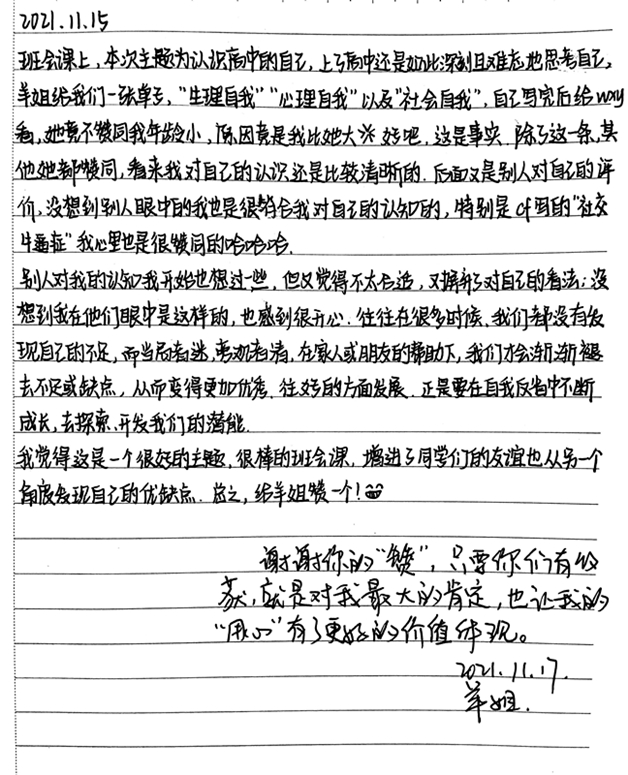 2021.11.15
班会课上，本次主题为认识高中的自己，上了高中还是如此深刻且难忘地思考自己，
羊姐给我们一张单子，“生理自我”“心理自我”以及“社会自我”，自己写完后给wxy
看，她竟不赞同我年龄小，原因竟是我比她大※ 好吧，这是事实，除了这一条，其
他她都赞同，看来我对自己的认识还是比较清晰的。后面又是别人对自己的评
价，没想到别人眼中的我也是很符合我对自己的认知的，特别是 写的“社交
牛逼症”我心里也是很赞同的哈哈哈。
别人对我的认知我开始也想过一些，但又觉得不太合适，又摒弃了对自己的看法；没
想到我在他们眼中是这样的，也感到很开心。往往在很多时候，我们都没有发
现自己的不足，而当局者迷，旁观者清，在家人或朋友的帮助下，我们才会渐渐褪
去不足或缺点，从而变得更加优秀，往好的方面发展，正是要在自我反省中不断
成长，去探索、开发我们的潜能。
我觉得这是一个很好的主题，很棒的班会课，增进了同学们的友谊也从另一个
角度发现自己的优缺点。总之，给羊姐赞一个！
谢谢你的“赞”，只要你们有收
获，就是对我最大的肯定，也让我的
“用心”有了更好的价值体现。
2021.11.17.
羊姐.